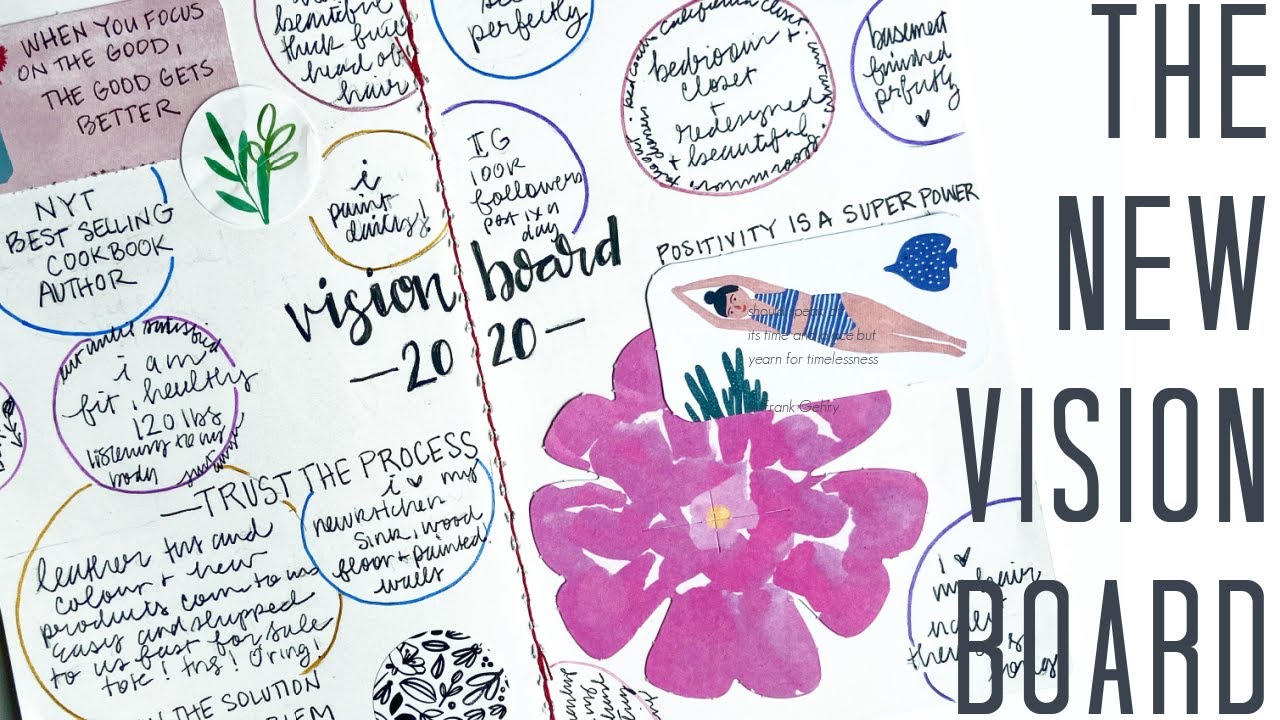 WHEN YOU FOCUS
ON THE GOOD,
THE GOOD GETS
BETTER
beautiful
thick full
head of
hair
perfectly
bedroom
closet
+
redesigned
+ beautiful
california closet
basement
finished
prfectly
♥
NYT
BEST SELLING
COOKBOOK
AUTHOR
i
paint
IG
100K
followers
post 1x a
day
vision board
—20 20—
POSITIVITY IS A SUPER POWER
should speak of
its time and place but
yearn for timelessness
Frank Gehry
satisfied
i am
fit, healthy
120 lbs
listening to my
body
—TRUST THE PROCESS
i ♥ my
new kitchen
sink, wood
floor + painted
walls
leather and
colour + new
products come to us
easy and shipped
to us fast for sale
tote! O ring!
THE SOLUTION
i ♥
my hair
THE
NEW
VISION
BOARD